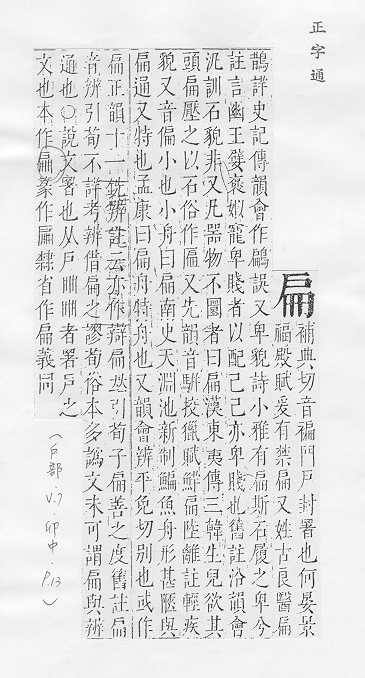 正字通
扁
補典切音褊門戶封署也何晏景
福殿賦爰有禁扁又姓古良醫扁
鵲詳史記傳韻會作鶣誤又卑貌詩小雅有扁斯石履之卑兮
註言幽王嬖褒姒寵卑賤者以配己己亦卑賤也舊註㳂韻會
汎訓石貌非又凡器物不圜者曰扁漢東夷傳三韓生兒欲其
頭扁壓之以石俗作匾又先韻音駢挍獵賦扁陸離註輕疾
貌又音偏小也小舟曰扁南史天淵池新制鯿魚舟形甚陿與
扁通又特也孟康曰扁舟特舟也又韻會辨平免切別也或作
扁正韻十一銑辨註云亦作辯扁𠀤引荀子扁善之度舊註扁
音辨引荀不詳考辨借扁之謬荀俗本多譌文未可謂扁與辨
通也〇說文署也从戶冊冊者署戶之
文也本作扁篆作扁隸省作扁義同
(戶部.V.7.卯中.P.13)